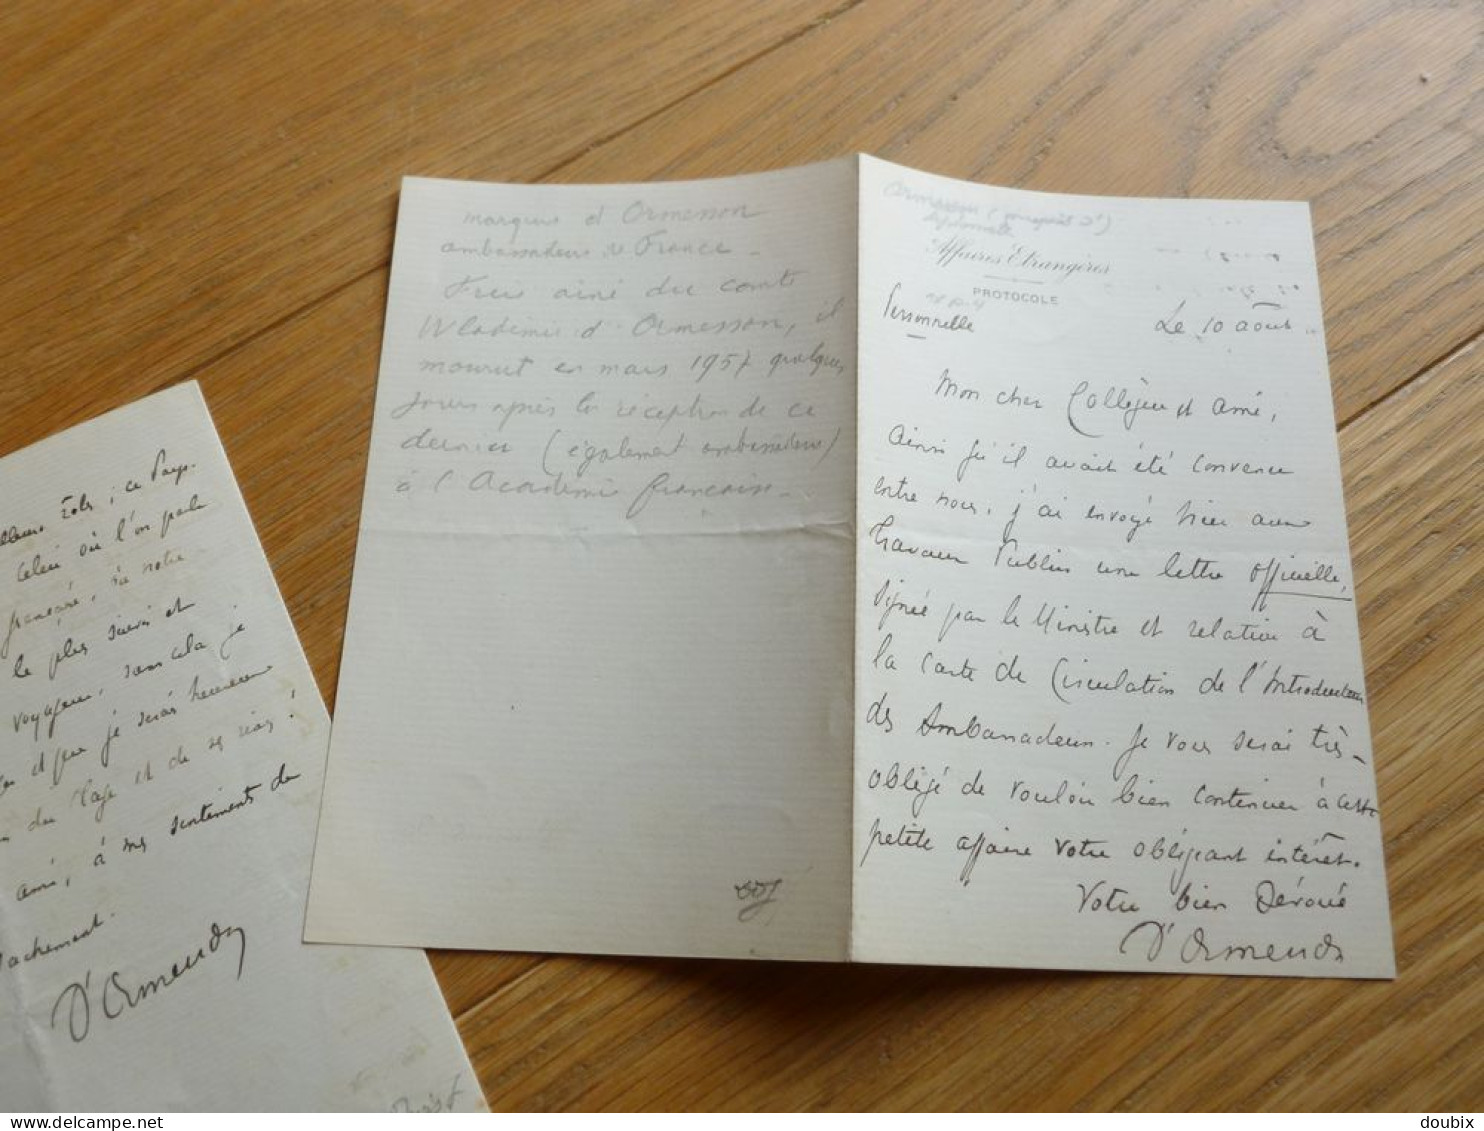 marquis d'Ormesson
ambassadeur de France -
Frère ainé du comte
Wladimir d'Ormesson, il
mourut en mars 1957 quelques
jours après la réception de ce
dernier (également ambassadeur)
à l'Académie française -
Ormesson (marquis d')
diplomate
Affaires Etrangères
PROTOCOLE
Personnelle
Le 10 août
Mon cher Collègue et ami,
Ainsi qu'il avait été convenu
entre nous, j'ai envoyé hier aux
Travaux Publics une lettre officielle,
signée par le Ministre et relative à
la carte de Circulation de l'Introducteur
des Ambassadeurs. Je vous serai très-
obligé de vouloir bien continuer à cette
petite affaire votre obligeant intérêt.
Votre bien dévoué
D'Ormesson
; ce Pays.
celui où l'on parle
française, a notre
le plus suivi et
voyageur, sans cela je
et que je serais heureux
du Page et de ses
ami, à mes sentiments de
attachement.
D'Ormesson
doubix